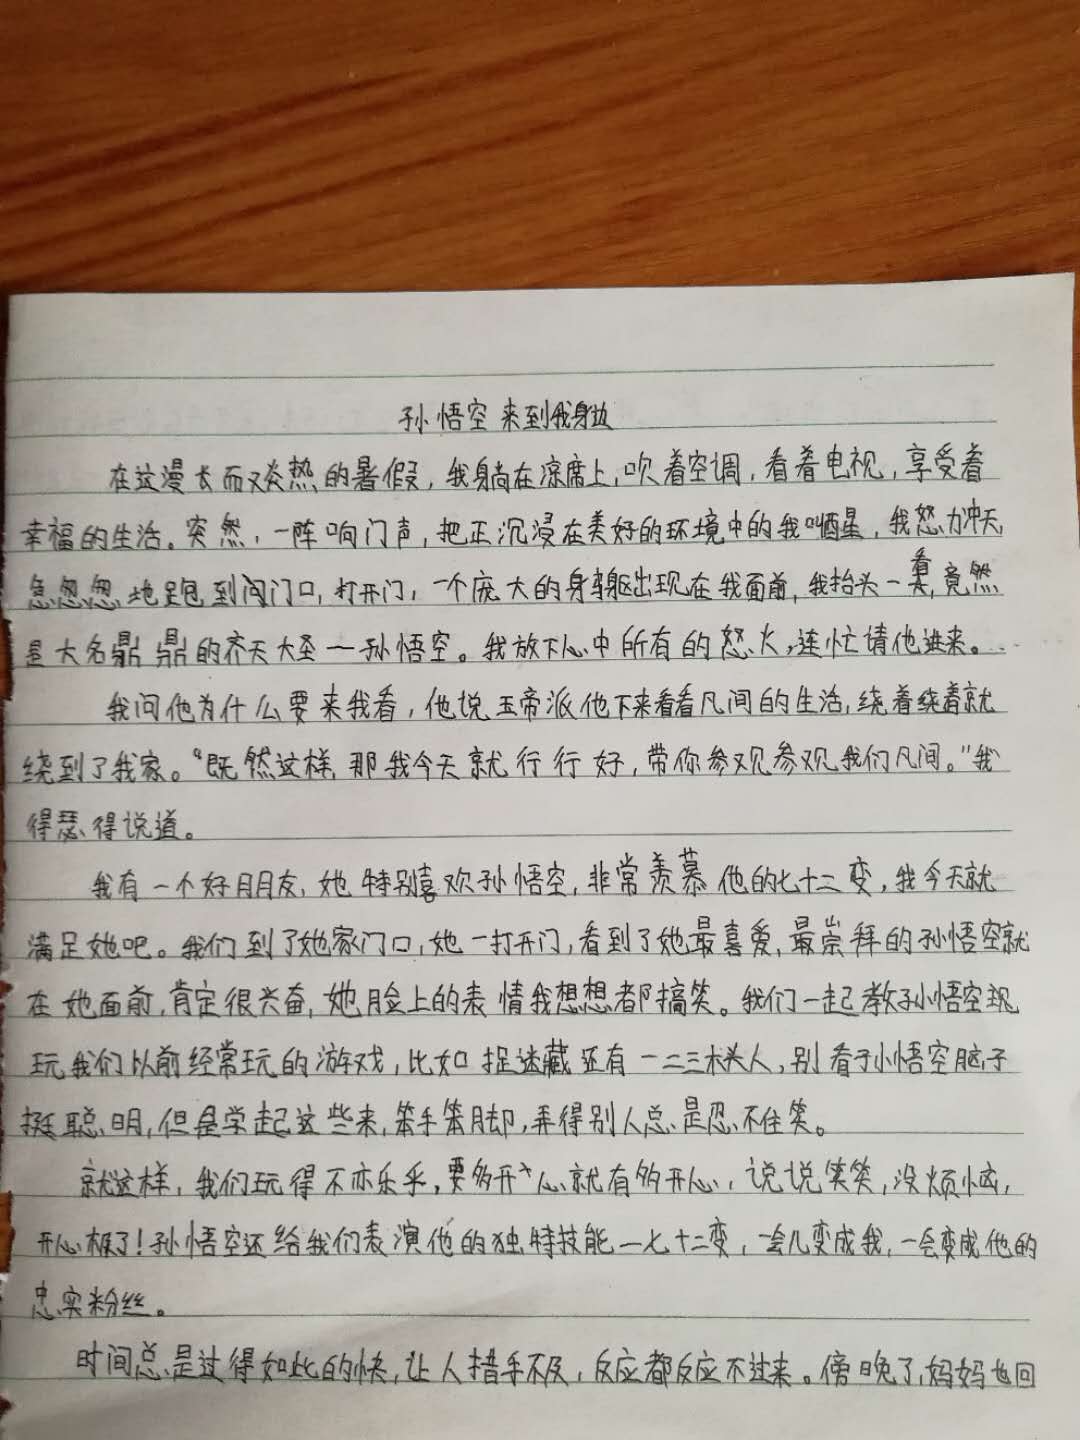 孙悟空来到我身边
在这漫长而又炎热的暑假，我躺在凉席上，吹着空调，看着电视，享受着
幸福的生活。突然，一阵响门声，把正沉浸在美好的环境中的我叫醒，我怒力冲天，
急忽忽地跑到门口，打开门，一个庞大的身躯出现在我面前，我抬头一看，竟然
是大名鼎鼎的齐天大圣一孙悟空。我放下心中所有的怒火，连忙请他进来。
我问他为什么要来我看，他说玉帝派他下来看看凡间的生活，绕着绕着就
绕到了我家。“既然这样，那我今天就行行好，带你参观参观我们凡间。”我
得瑟得说道。
我有一个好朋友，她特别喜欢孙悟空，非常羡慕他的七十二变，我今天就
满足她吧。我们到了她家门口，她一打开门，看到了她最喜爱，最崇拜的孙悟空就
在她面前，肯定很兴奋，她脸上的表情我想想都搞笑。我们一起教孙悟空现
玩我们以前经常玩的游戏，比如捉迷藏还有一二三木头人，别看于小悟空脑子
挺聪明，但是学起这些来，笨手笨脚，弄得别人总是忍不住笑。
就这样，我们玩得不亦乐乎，要多开心就有多开心，说说笑笑，没烦恼，
开心极了！孙悟空还给我们表演他的独特技能一七十二变，一会儿变成我，一会变成他的
忠实粉丝。
时间总是过得如此的快，让人措手不及，反应都反应不过来。傍晚了，妈妈也回